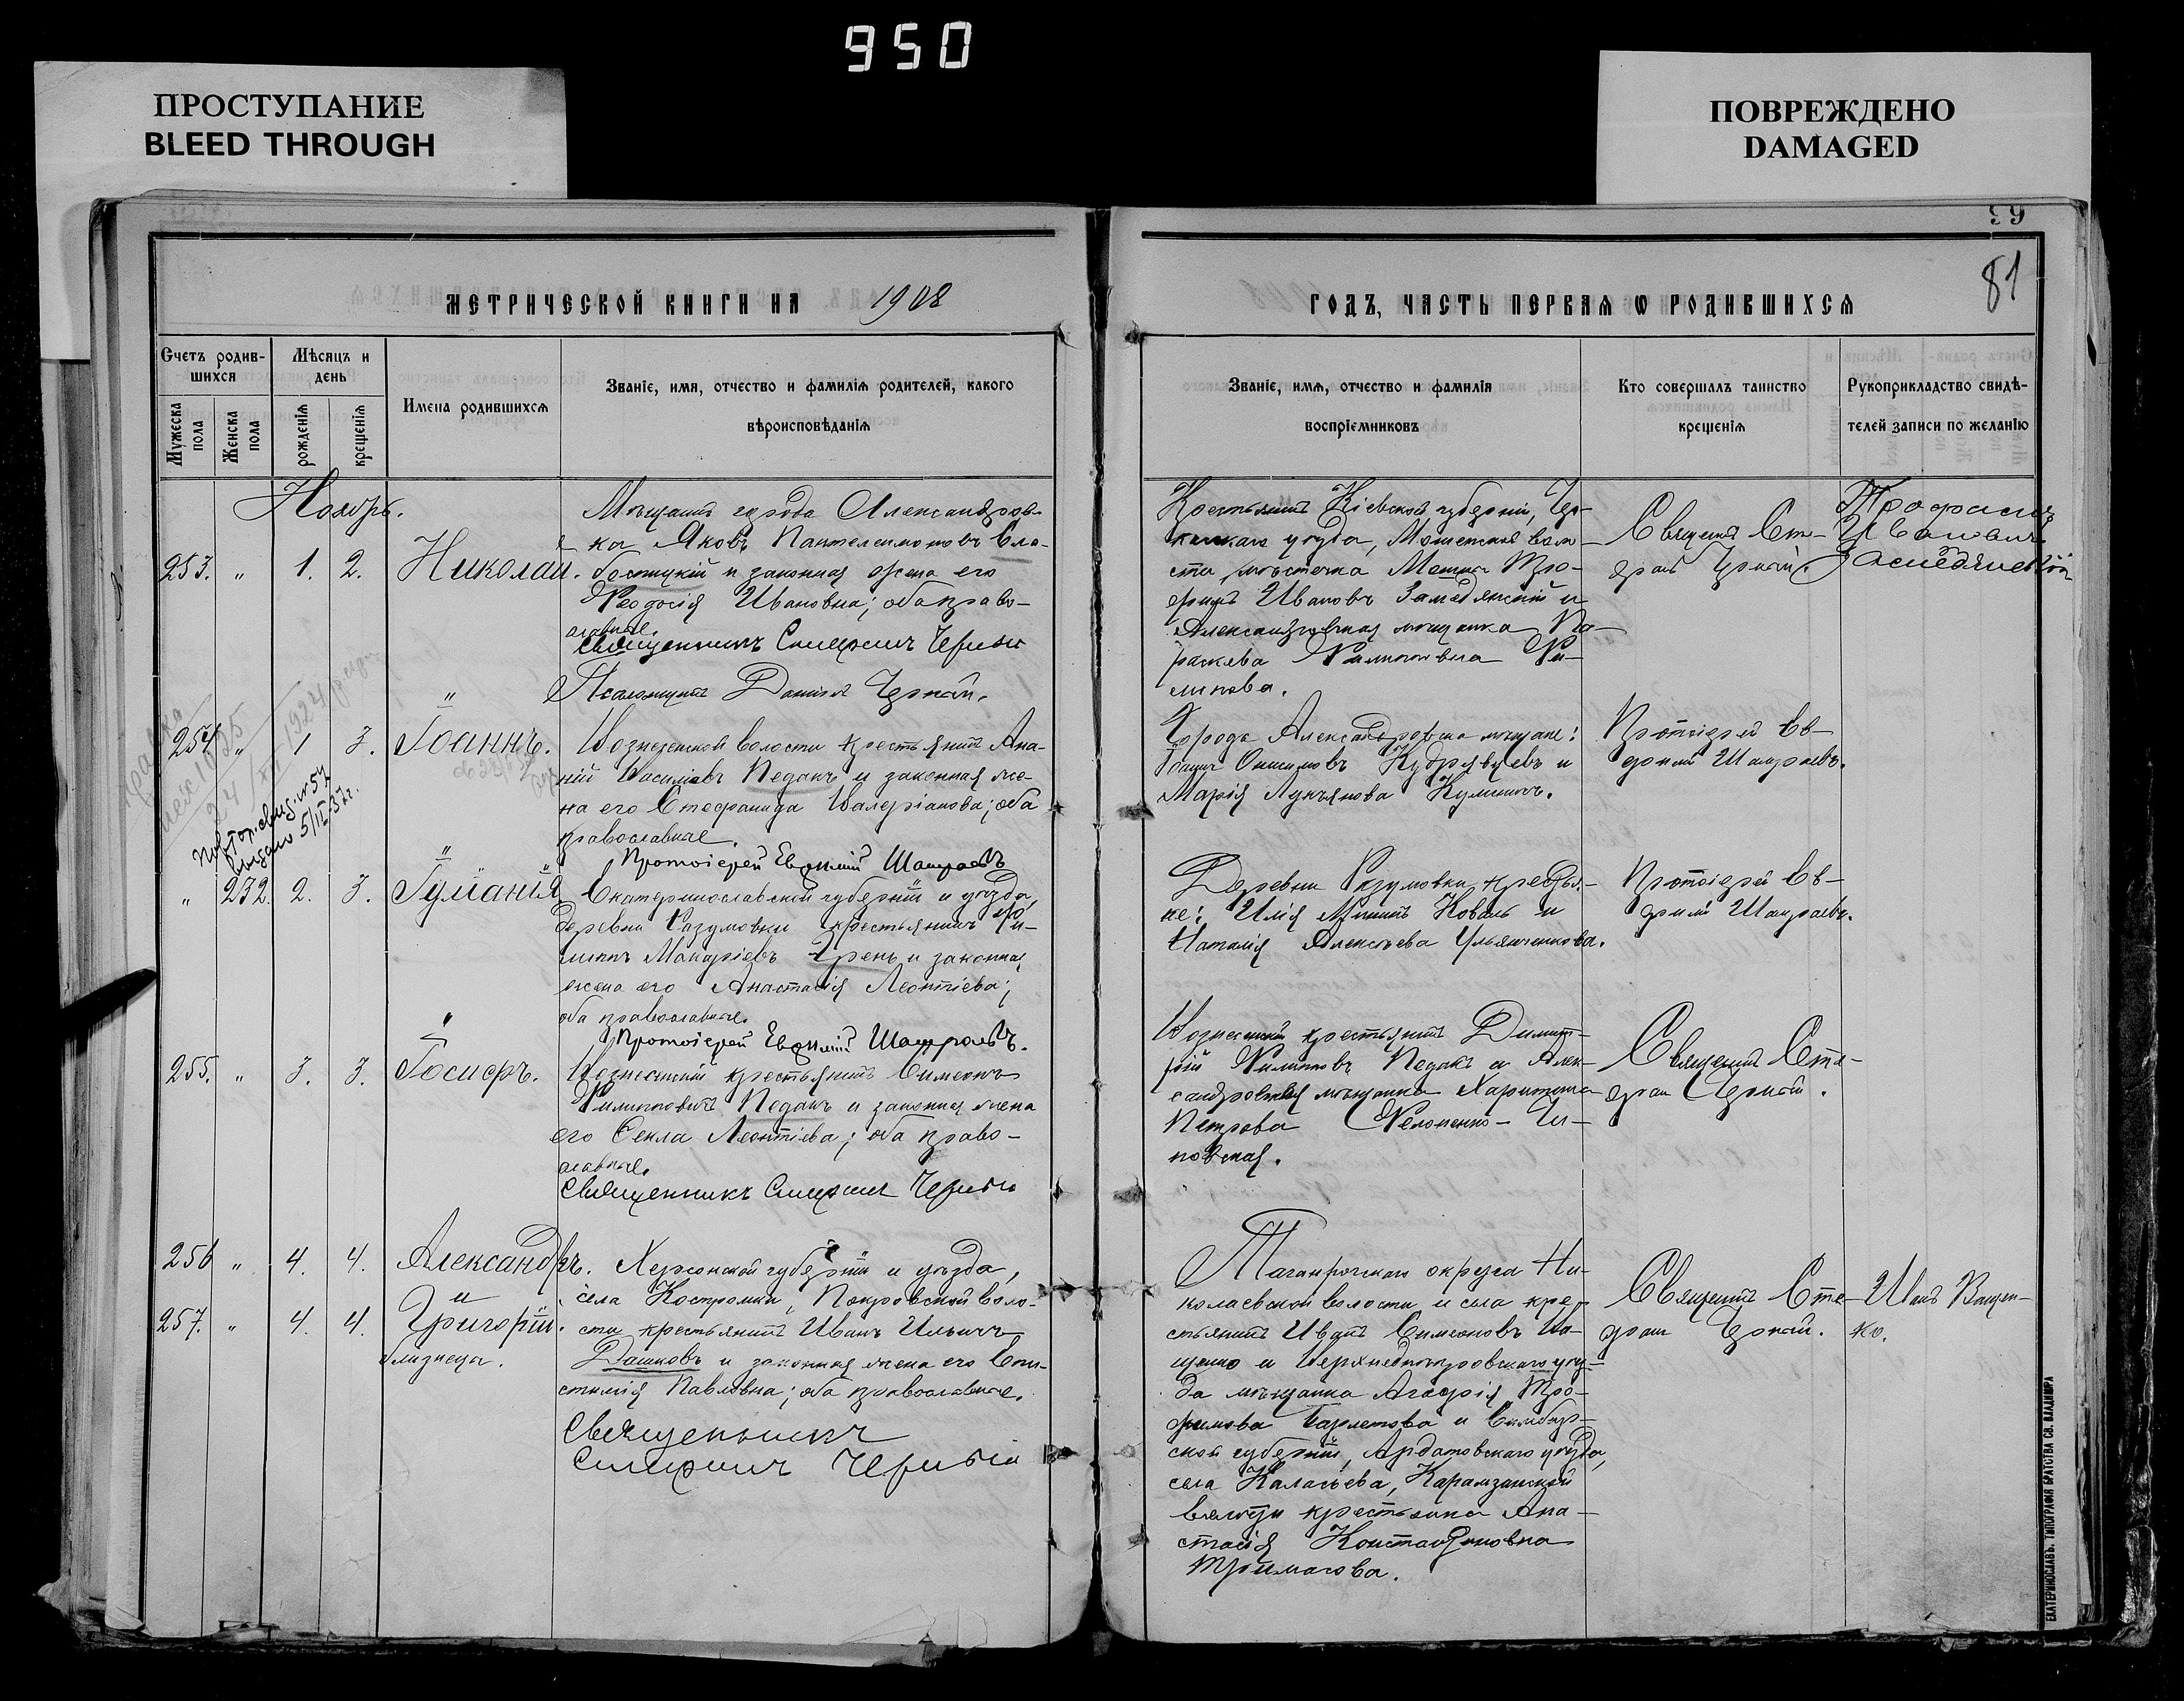 950
ПРОСТУПАНИЕ
BLEED THROUGH
ПОВРЕЖДЕНО
DAMAGED
81
МЕТРИЧЕСКОЙ КНИГИ НА 1908
ГОДЪ, ЧАСТЬ ПЕРВАЯ Ѡ РОДИВШИХСЯ
Счетъ родив-
шихся
Мѣсяцъ и
день
Мужеска
пола
Женска
пола
рожденія
крещенія
Имена родившихся
Званіе, имя, отчество и фамилія родителей, какого
вѣроисповѣданія
Званіе, имя, отчество и фамилія
воспріемниковъ
Кто совершалъ таинство
крещенія
Рукоприкладство свидѣ-
телей записи по желанію
Ноябрь.
253. " 1. 2. Николай.
Мѣщанинъ города Александров-
ка Яковъ Пантелеимоновъ
и законная жена его
Ѳеодосія Ивановна; оба право-
славные.
Священникъ Черный
Псаломщикъ Даніилъ
Крестьянинъ Кіевской губерніи, Чер-
касскаго уѣзда, Мошенской воло-
сти, мѣстечка Мошны Тро-
фимъ Ивановъ и
Александровская мѣщанка Па-
раскева Филиппова Фи-
липова.
Священ. Сте-
фанъ Черный.
Трофимъ
Ивановичъ
254 " 1 3. Іоаннъ.
Вознесенской волости крестьянинъ Ана-
ній Васильевъ Педанъ и законная же-
на его Стефанида Валеріанова; оба
православные.
Протоіерей Евѳимій
Города Александровска мѣщане:
Іоаннъ Онисимовъ Кудрявцевъ и
Марія Лукьянова Кулинич.
Протоіерей Ев-
ѳимій
Повтор. свид. № 54
выдано 5/III 37 г.
" 232. 2. 3. Іуліанія
Екатеринославской губерніи и уѣзда,
деревни Разумовки крестьянинъ Фи-
липпъ Макаріевъ Грень и законная
жена его Анастасія Леонтіева;
оба православные.
Протоіерей Евѳимій
Деревни Разумовки крестья-
не: Илія Коваль и
Наталія Алексѣева Ульянченкова.
Протоіерей Ев-
ѳимій
255. " 3. 3. Іосифъ.
Вознесенскій крестьянинъ Симеонъ
Филипповичъ Педанъ и законная жена
его Ѳекла Леонтіева; оба право-
славные.
Священникъ Черный
Вознесенскій крестьянинъ Димит-
рій Филипповъ Педанъ и Алек-
сандровская мѣщанка Харитина
Петрова
Священникъ Сте-
фанъ Черный.
256 " 4. 4. Александръ.
и
257. " 4. 4. Григорій.
близнецы.
Херсонской губерніи и уѣзда,
села Костромки, Покровской воло-
сти крестьянинъ Иванъ Ильичъ
Дашковъ и законная жена его Епи-
стимія Павловна; оба православные.
Священникъ
Черный
Таганрогскаго округа Ни-
колаевской волости и села кре-
стьянинъ Иванъ Симеоновъ Ва-
щенко и Верхнеднѣпровскаго уѣз-
да мѣщанка Агафія Тро-
фимова и Симбир-
ской губерніи, Ардатовскаго уѣзда,
села Каласьева, Карамзинской
волости крестьянка Ана-
стасія Константиновна
Священникъ Сте-
фанъ Черный.
Иванъ Ващен-
ко.
ЕКАТЕРИНОСЛАВЪ. ТИПОГРАФІЯ БРАТСТВА СВ. ВЛАДИМІРА